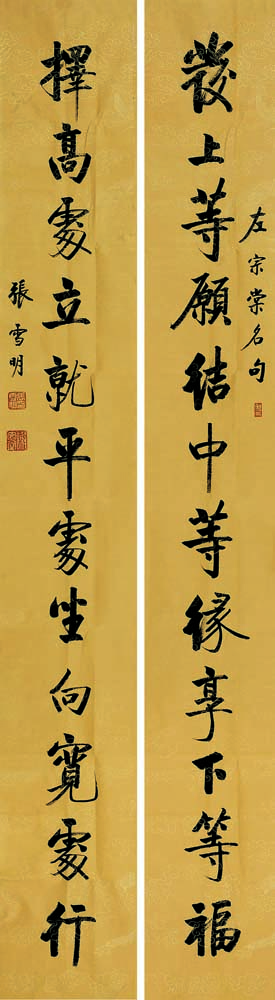 左宗棠名句
發上等願結中等緣享下等福
擇高處立就平處坐向寬處行
張雪明